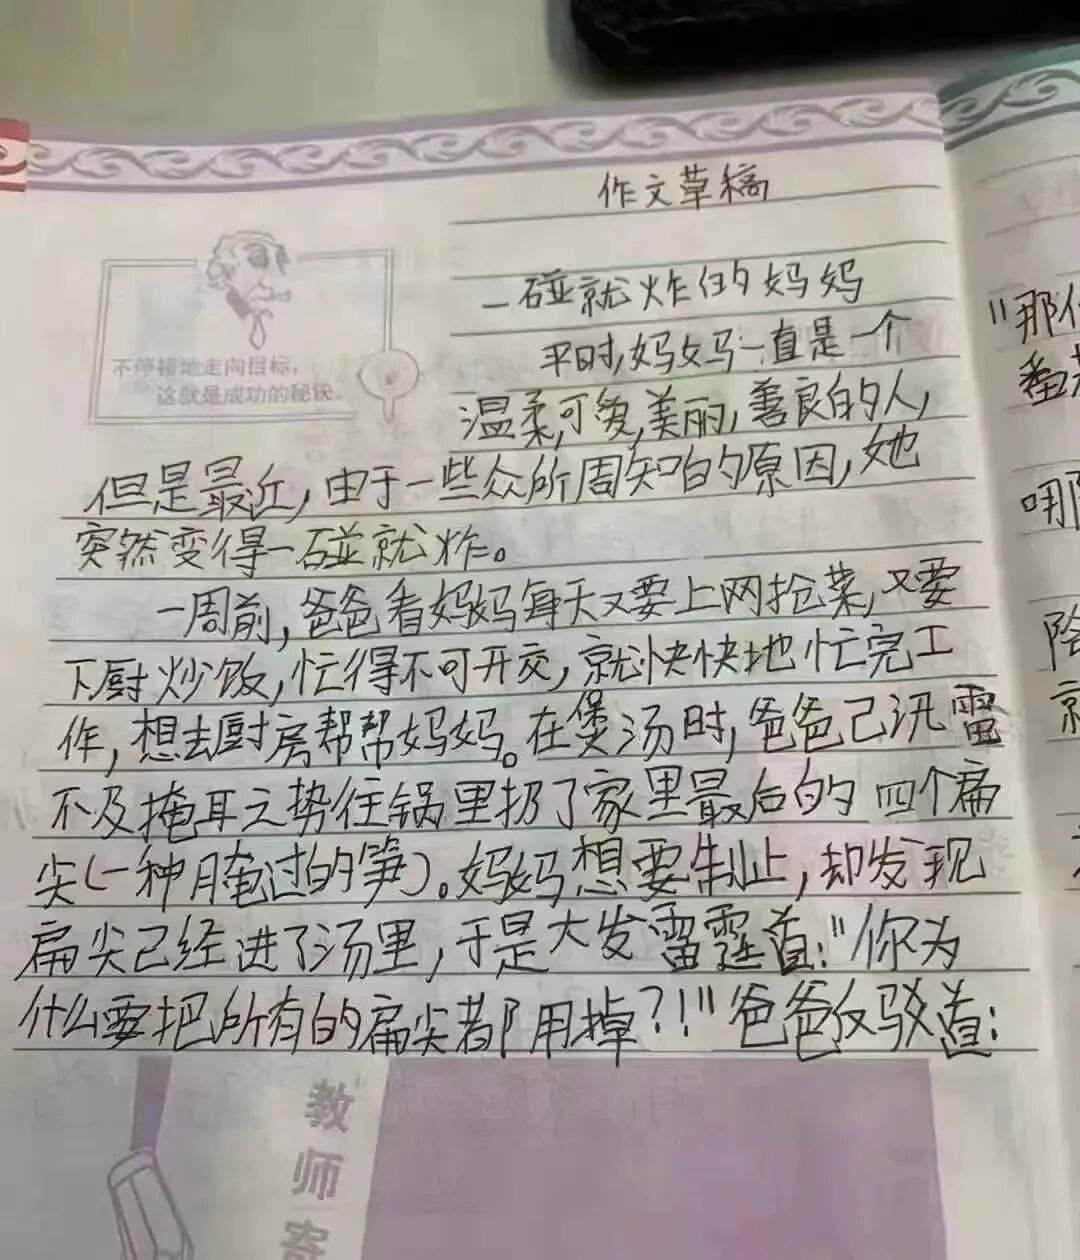 作文草稿
一碰就炸的妈妈
平时,妈妈一直是一个
温柔,可爱,美丽,善良的人,
但是最近,由于一些众所周知的原因,她
突然变得一碰就炸。
一周前,爸爸看妈妈每天又要上网抢菜,又要
下厨炒饭,忙得不可开交,就快快地忙完工
作,想去厨房帮帮妈妈。在煲汤时,爸爸已汛雷
不及掩耳之势往锅里扔了家里最后的四个扁
尖(一种腌过的笋)。妈妈想要制止,却发现
扁尖已经进了汤里,于是大发雷霆道:"你为
什么要把所有的扁尖都用掉?!"爸爸反驳道:
不停地走向目标,
这就是成功的秘诀
教师寄
"那
番
咽